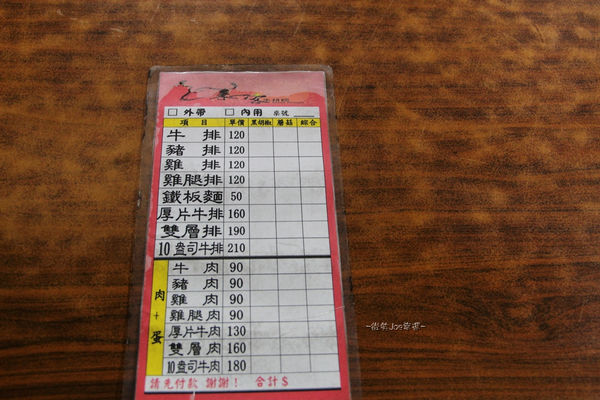 □ 外帶 □ 內用 桌號
項目 單價 黑胡椒 蘑菇 綜合
牛排 120
豬排 120
雞排 120
雞腿排 120
鐵板麵 50
厚片牛排 160
雙層排 190
10盎司牛排 210
肉+蛋
牛肉 90
豬肉 90
雞肉 90
雞腿肉 90
厚片牛肉 130
雙層肉 160
10盎司牛肉 180
請先付款 謝謝! 合計$